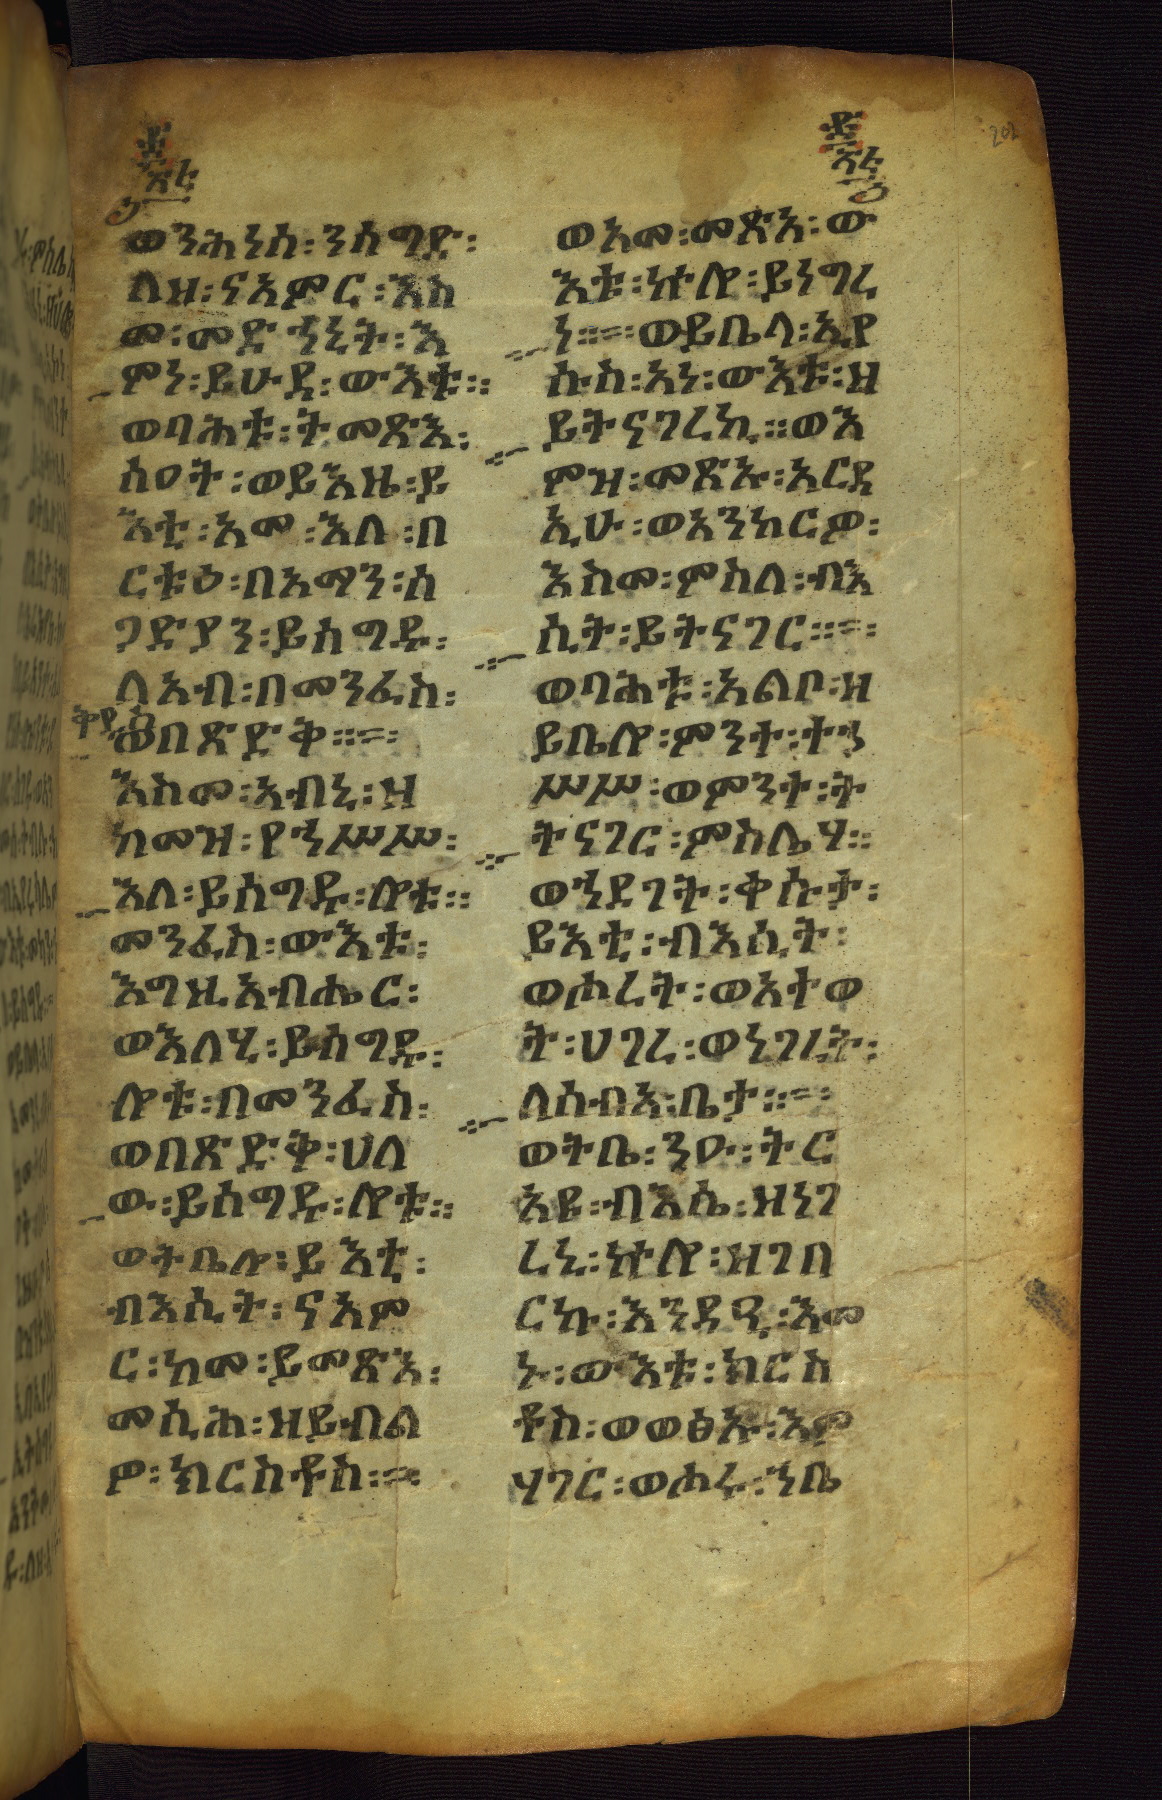 ወንሕነሰ፡ንሰግድ፡
ለዘ፡ናአምር፡እስ
መ፡መድኀኒት፡እ
ምነ፡ይሁዳ፡ውእቱ።
ወባሕቱ፡ትመጽእ፡
ሰዐት፡ወይእዜ፡ይ
እቲ፡አመ፡እለ፡በ
ርቱዕ፡በአማን፡ሰ
ጋድያን፡ይሰግዱ፡
ለአብ፡በመንፈስ፡
ወበጽድቅ።
እስመ፡አብኒ፡ዘ
ከመዝ፡የኀሥሥ፡
እለ፡ይሰግዱ፡ሎቱ።
መንፈስ፡ውእቱ፡
እግዚአብሔር፡
ወእለሂ፡ይሰግዱ፡
ሎቱ፡በመንፈስ፡
ወበጽድቅ፡ሀለ
ው፡ይስግዱ፡ሎቱ።
ወትቤሎ፡ይእቲ፡
ብእሲት፡ናአም
ር፡ከመ፡ይመጽእ፡
መሲሕ፡ዘይብል
ዎ፡ክርስቶስ።
ወአመ፡መጽአ፡ው
እቱ፡ኵሎ፡ይነግረ
ነ።ወይቤላ፡ኢየ
ሱስ፡አነ፡ውእቱ፡ዘ
ይትናገረኪ።ወእ
ምዝ፡መጽኡ፡አርዳ
ኢሁ፡ወአንከርዎ፡
እስመ፡ምስለ፡ብእ
ሲት፡ይትናገር።
ወባሕቱ፡አልቦ፡ዘ
ይቤሎ፡ምንተ፡ተኀ
ሥሥ፡ወምንተ፡ት
ትናገር፡ምስሌሃ።
ወኀደገት፡ቀሱታ፡
ይእቲ፡ብእሲት፡
ወሖረት፡ወአተወ
ት፡ሀገረ፡ወነገረት፡
ለሰብአ፡ቤታ።
ወትቤ፡ንዑ፡ትር
አዩ፡ብእሴ፡ዘነገ
ረኒ፡ኵሎ፡ዘገበ
ርኩ፡እንዳዒ፡እመ
ኑ፡ውእቱ፡ክርስ
ቶስ፡ወወፅኡ፡እም
ሃገር፡ወሖሩ፡ኀቤ